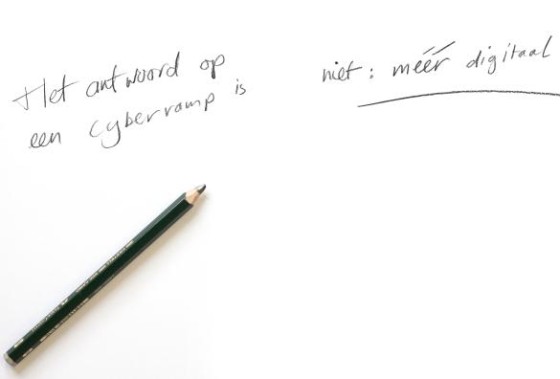 Het antwoord op
een cyberramp is
niet: méér digitaal